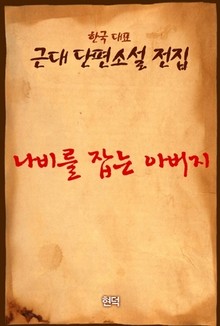 한국 대표
근대 단편소설 전집
나비를 잡는 아버지
현덕